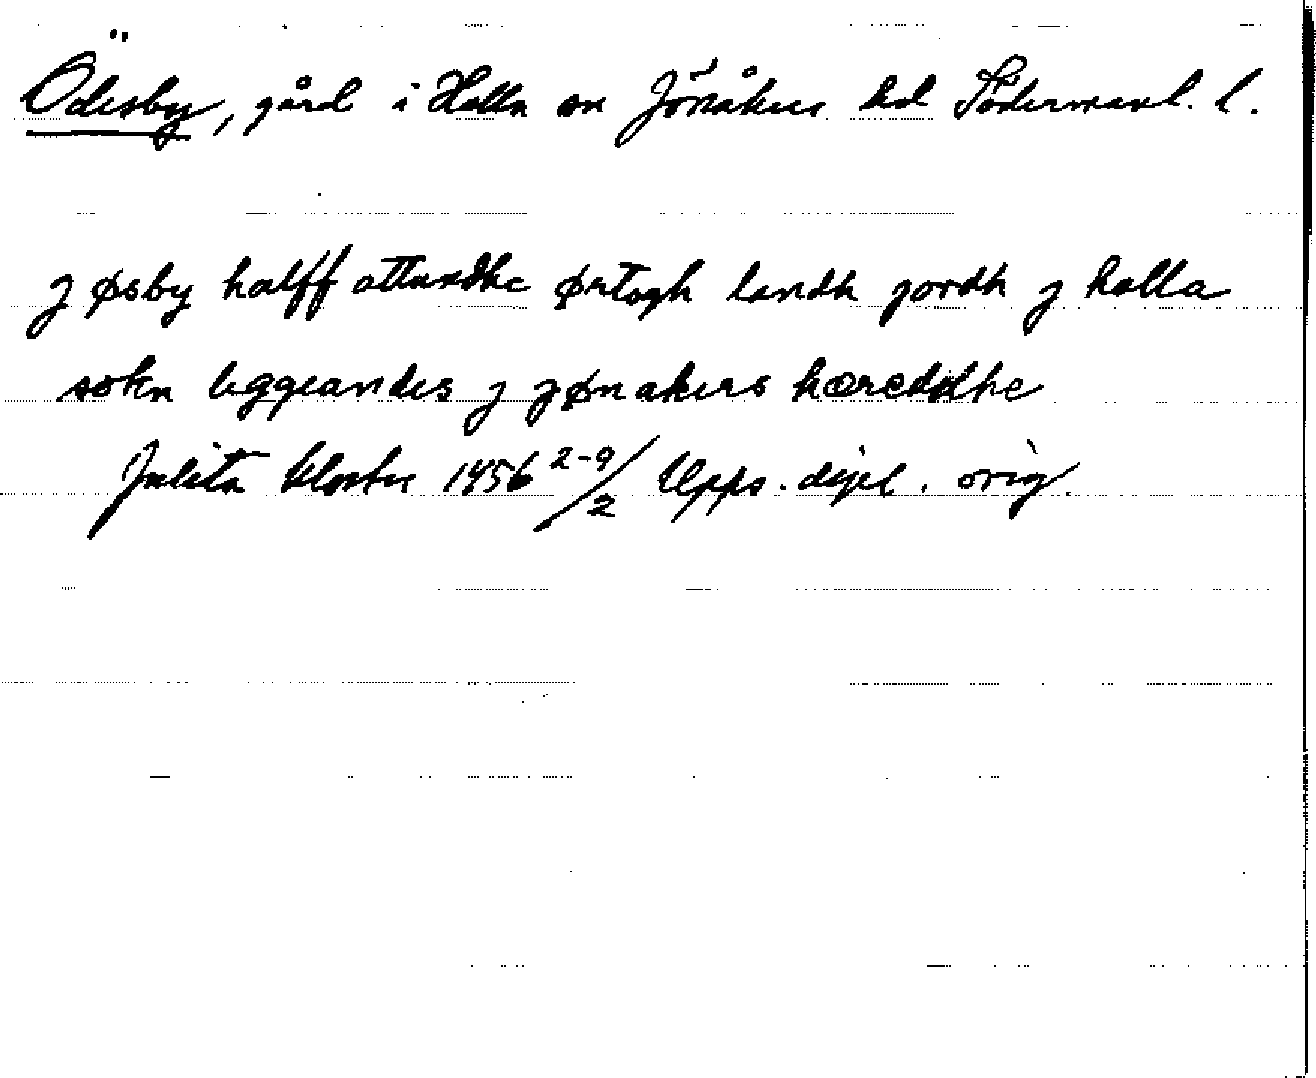 Ödesby, gård i Halla sn Jönåkers hd Södermanl. l.
j øsby halff attandhe ørtogh landh jordh j halla
sokn liggiandes j jønakers hæreddhe
Julita kloster 1456 2-9/2 Upps. dipl. orig.